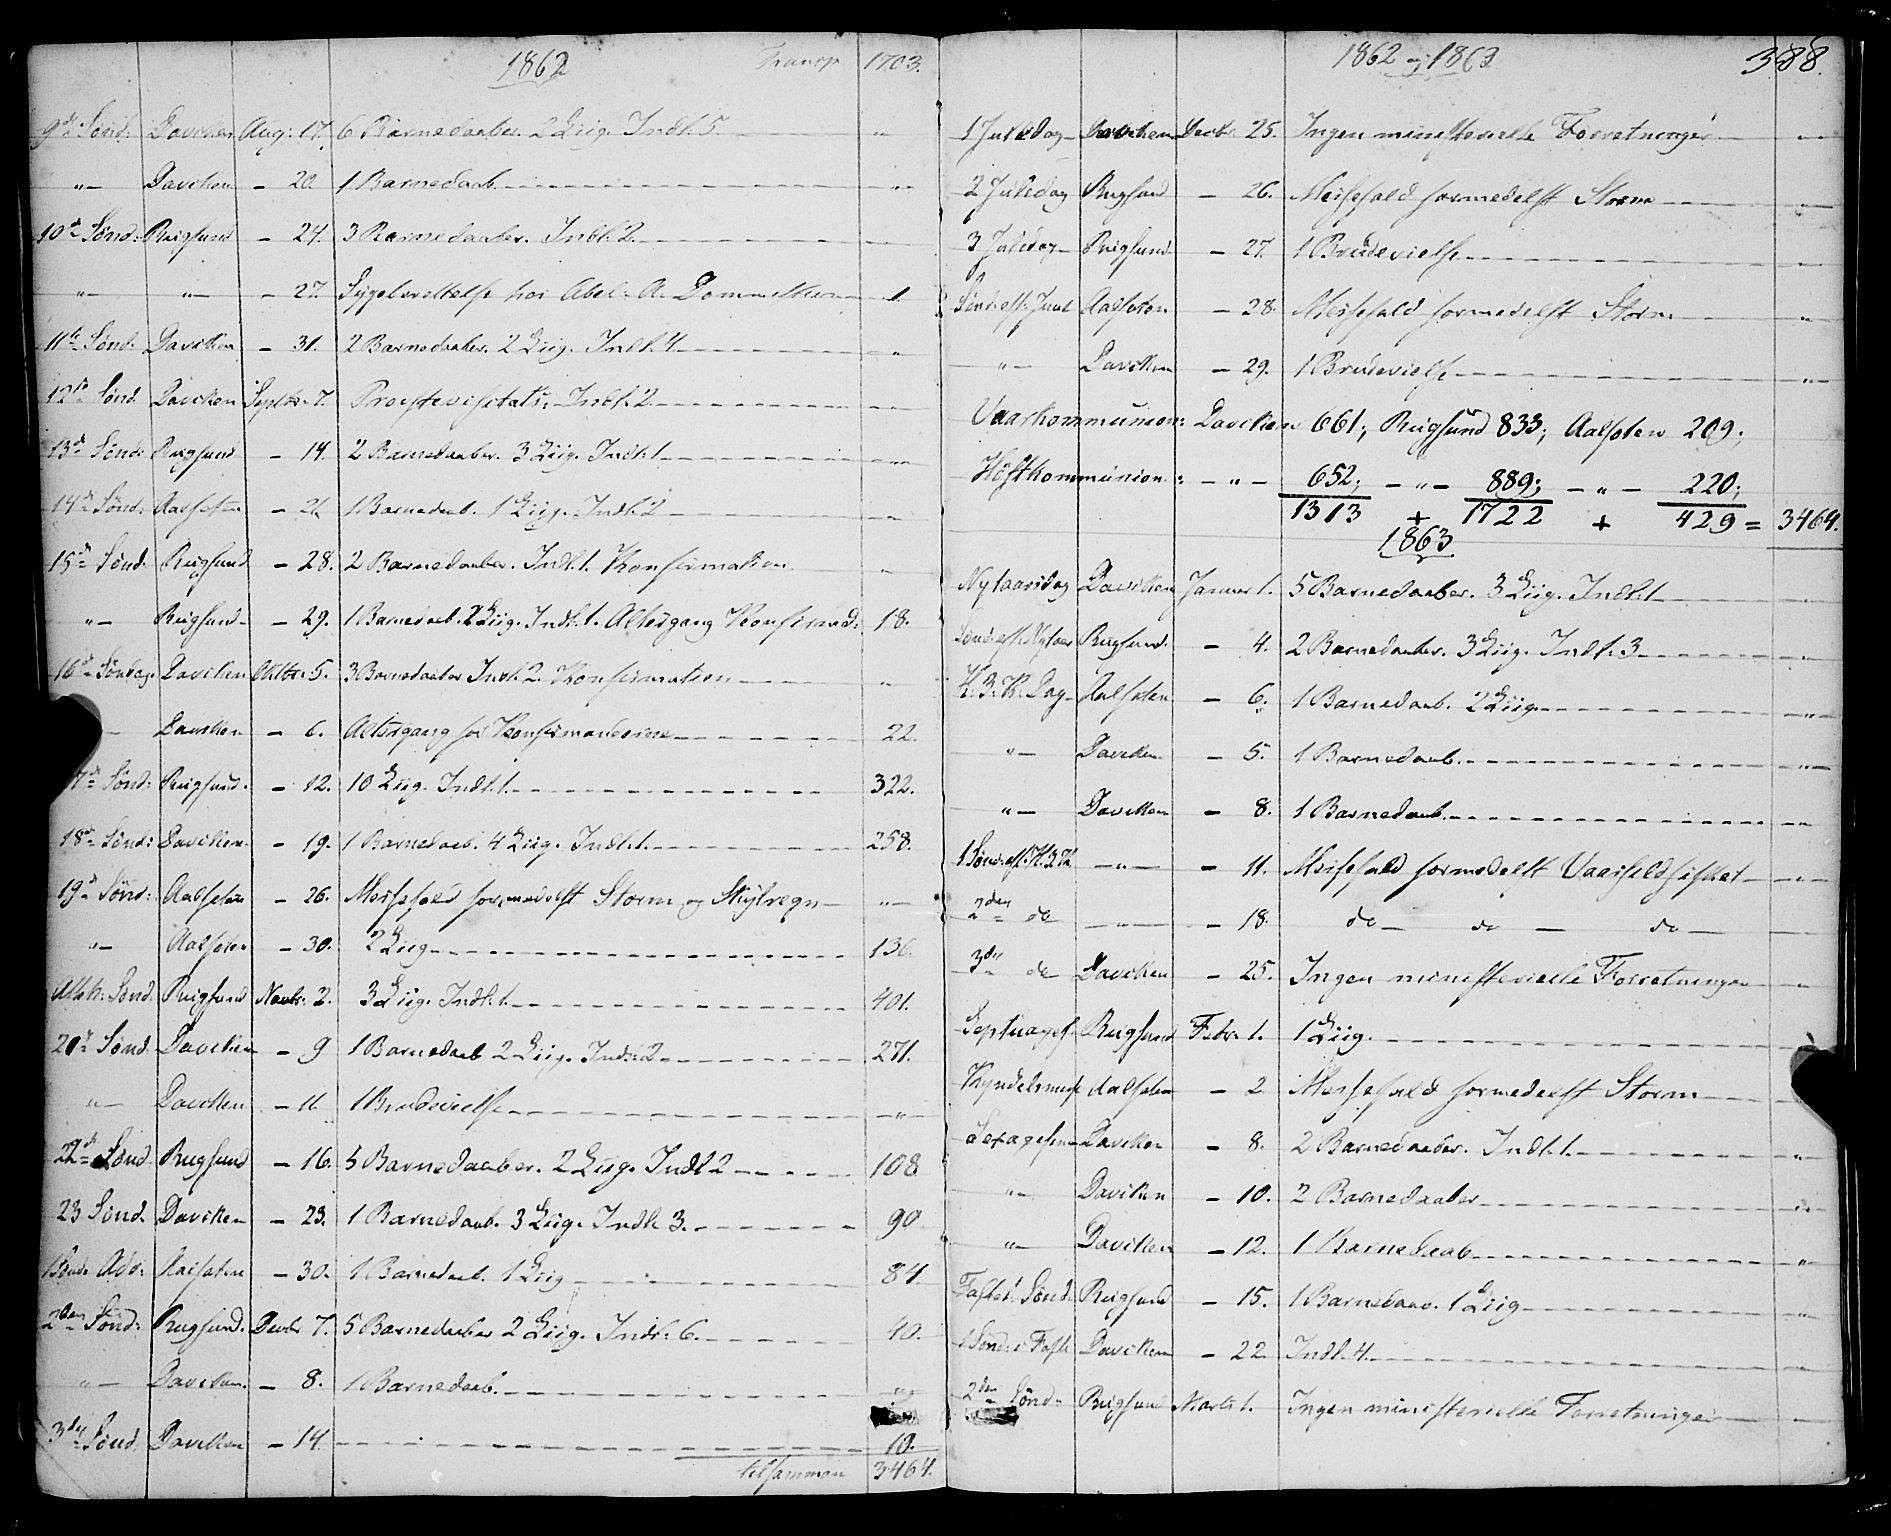 1862 Transp 1703.
9de Sønd: Daviken Aug: 17. 6 Barnedaaber. 2 Liig. Indl. 5 "
"— Daviken — 20. 1 Barnedaab. "
10de Sønd: Rugsund — 24. 3 Barnedaaber. Indl. 2. "
"— "— — 27. Sygeberettelse hos Abel. A. 1.
11te Sønd: Daviken — 31. 2 Barnedaaber. 2 Liig. Indl. 4. "
12te Sønd. Daviken Septbr. 7. Provstevisitats. Indl. 2. "
13de Sønd: Rugsund — 14. 2 Barnedaaber. 3 Liig. Indl. 1 "
14de Sønd: Aalfoten — 21. 1 Barnedaab. 1 Liig. Indl. 2 "
15de Sønd. Rugsund — 28. 2 Barnedaaber. Indl. 1. Konfirmation "
"— Rugsund — 29. 1 Barnedaab. 2 Liig. Indl. 1. Altergang Konfirmand: 18.
16de Søndag. Daviken Oktbr. 5. 3 Barnedaaber Indl. 2. Konfirmation "
— Daviken — 6. Altergang for Konfirmanderne 22.
17de Sønd: Rugsund. — 12. 10 Liig. Indl. 1. 322.
18de Sønd: Daviken. — 19. 1 Barnedaab. 4 Liig. Indl. 1. 258.
19de Sønd: Aalfoten — 26. Messefald formedelst Storm og Skylregn "
"— Aalfoten — 30. 2 Liig. 136.
Alleh: Sønd. Rugsund Novbr. 2. 3 Liig. Indl. 1. 401.
20de Sønd. Daviken — 9 1 Barnedaab 2 Liig. Indl. 2 271.
"— Daviken — 11 1 Brudevielse "
22de Sønd. Rugsund — 16. 5 Barnedaaber. 2 Liig. Indl 2 108
23 Sønd. Daviken — 23. 1 Barnedaab. 3 Liig. Indl. 3. 90
1 Sønd. Adv: Aalfoten — 30. 1 Barnedaab. 1 Liig 84.
2den Sønd: Rugsund. Decbr 7. 5 Barnedaaber 2 Liig. Indl. 6. 40.
"— Daviken. — 8. 1 Barnedaab. "
3die Sønd. Daviken — 14. 10.
tilsammen 3464.
1862 og 1863 388.
1 Juledag Daviken Decbr 25. Ingen ministerielle Forretninger "
2 Juledag Rugsund — 26. Messefald formedelst Storm "
3 Juledag Rugsund — 27. 1 Brudevielse "
Sønd: eft. Juul Aalfoten — 28. Messefald formedelst Storm "
"— Daviken — 29. 1 Brudevielse "
Vaarkommunion: Daviken 661; Rugsund 833; Aalfoten 209;
Høstkommunion: — "— 652; — "— 889; — "— 220;
1313 + 1722 + 429 = 3464.
1863.
Nytaarsdag Daviken Januar 1. 5 Barnedaaber. 3 Liig. Indl. 1 "
Sønd. eft. Nytaar Rugsund. — 4. 2 Barnedaaber. 3 Liig. Indl. 3 "
H. 3. K. Dag Aalfoten — 6. 1 Barnedaab. 2 Liig "
"— Daviken — 5. 1 Barnedaab. "
"— Daviken — 8. 1 Barnedaab. "
1 Sønd. eft. H. 3 K — "— — 11. Messefald formedelst Vaarsildfisket "
2den do — "— — 18. do — do — do —
3die do Daviken — 25. Ingen ministerielle Forretninger "
Septuages. Rugsund Febr. 1. 1 Liig. "
Kyndelsmisse Aalfoten — 2 Messefald formedelst Storm "
Sexagesima Daviken — 8. 2 Barnedaaber. Indl. 1. "
"— Daviken — 10. 2 Barnedaaber "
"— Daviken — 12. 1 Barnedaab "
Fastel. Sønd. Rugsund — 15. 1 Barnedaab. 1 Liig "
1 Sønd: i Faste Daviken — 22 Indl. 4. "
2den Sønd: Rugsund Marts 1. Ingen ministerielle Forretninger "